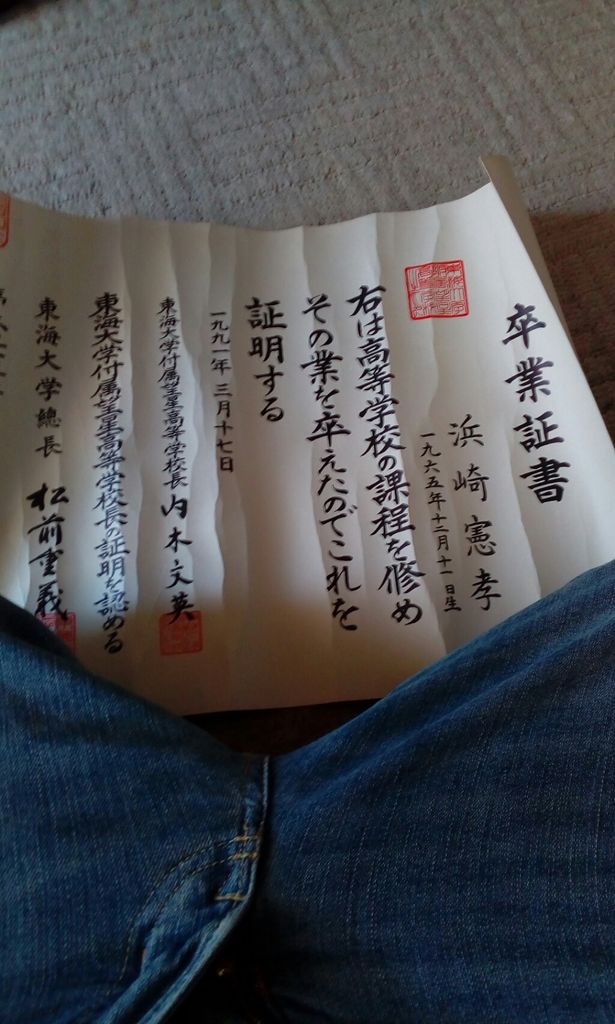 卒業証書
浜崎憲孝
一九六五年十二月十一日生
右は高等学校の課程を修め
その業を卒えたのでこれを
証明する
一九九一年三月十七日
東海大学付属望星高等学校長 内木文英
東海大学付属望星高等学校長の証明を認める
東海大学總長 松前重義